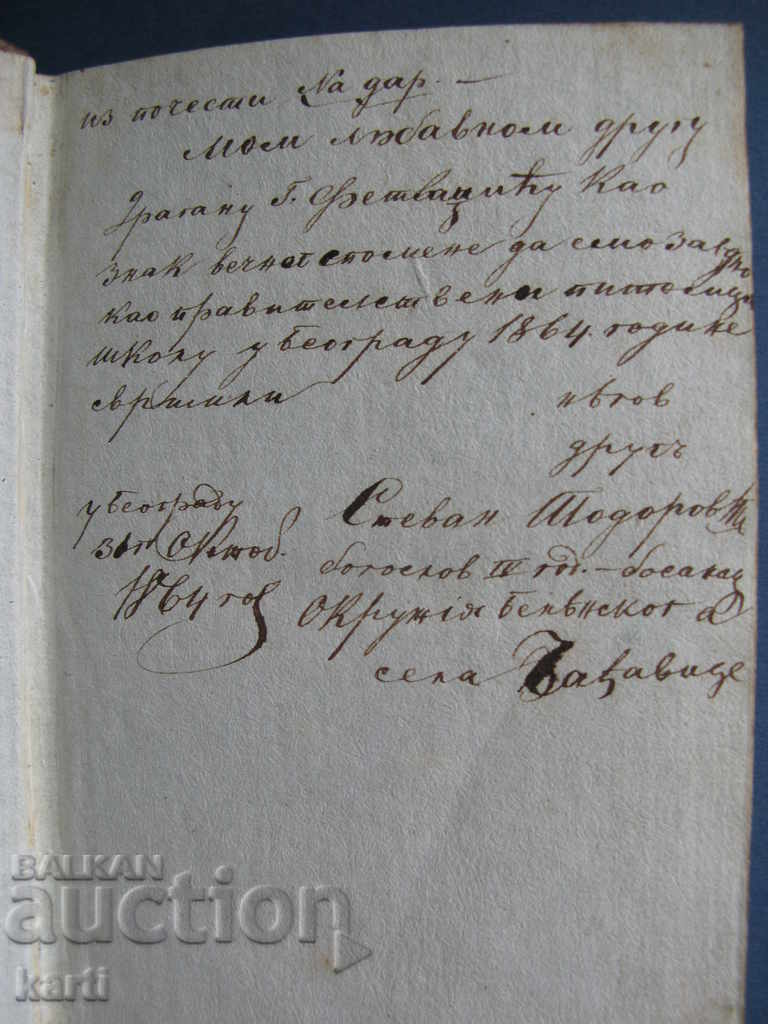 из почести На дар. —
мом љубавном другу
Драгану Г. Фетваџићу Као
знак вечног спомена да смо заедно
као правителствени питомици
школу у Београду 1864. године
свршили
његов
другъ
у Београду
Стеван Тодоровић
Октоб.
богослов IV год. – босанац
1864 год
Окружія Бањ̑ског а
села Чађавице
BALKAN
auction
karti